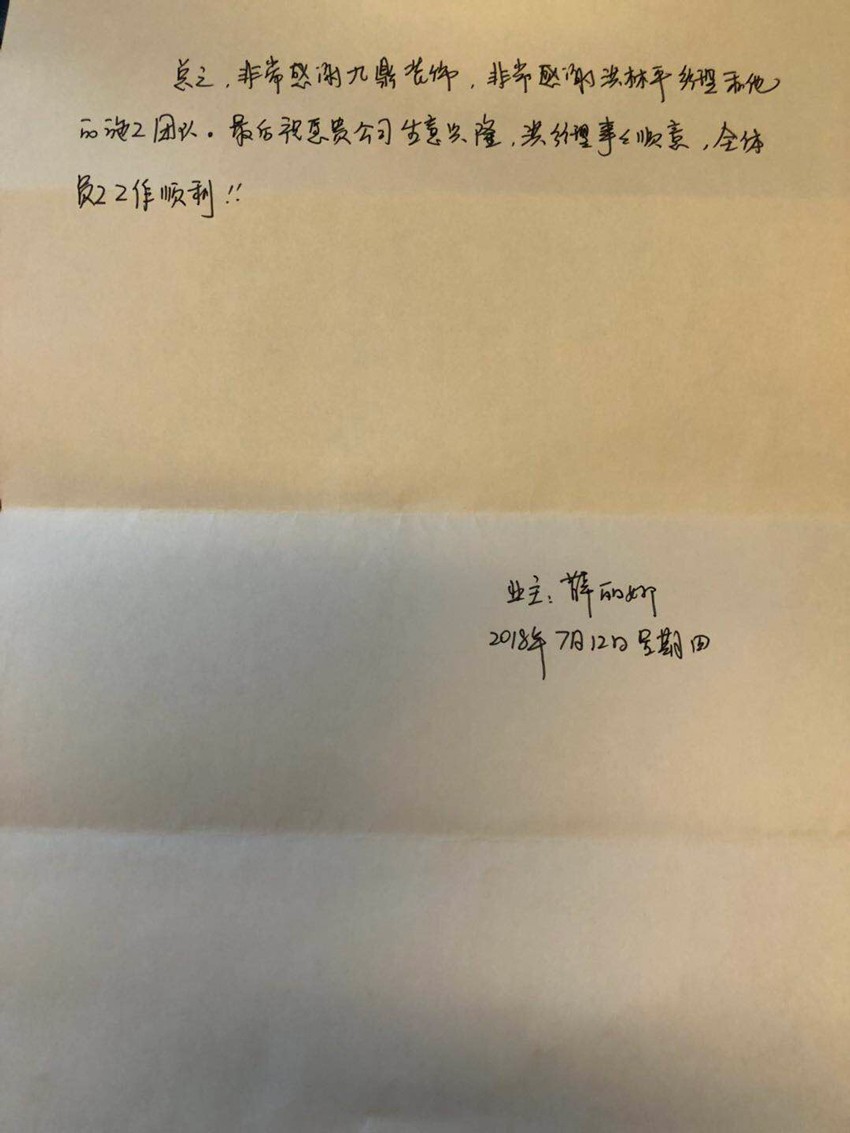 总之，非常感谢九鼎装饰，非常感谢洪林平经理和他
的施工团队。最后祝愿贵公司生意兴隆，洪经理事事顺意，全体
员工工作顺利!!
业主：薛丽娜
2018年7月12日星期四